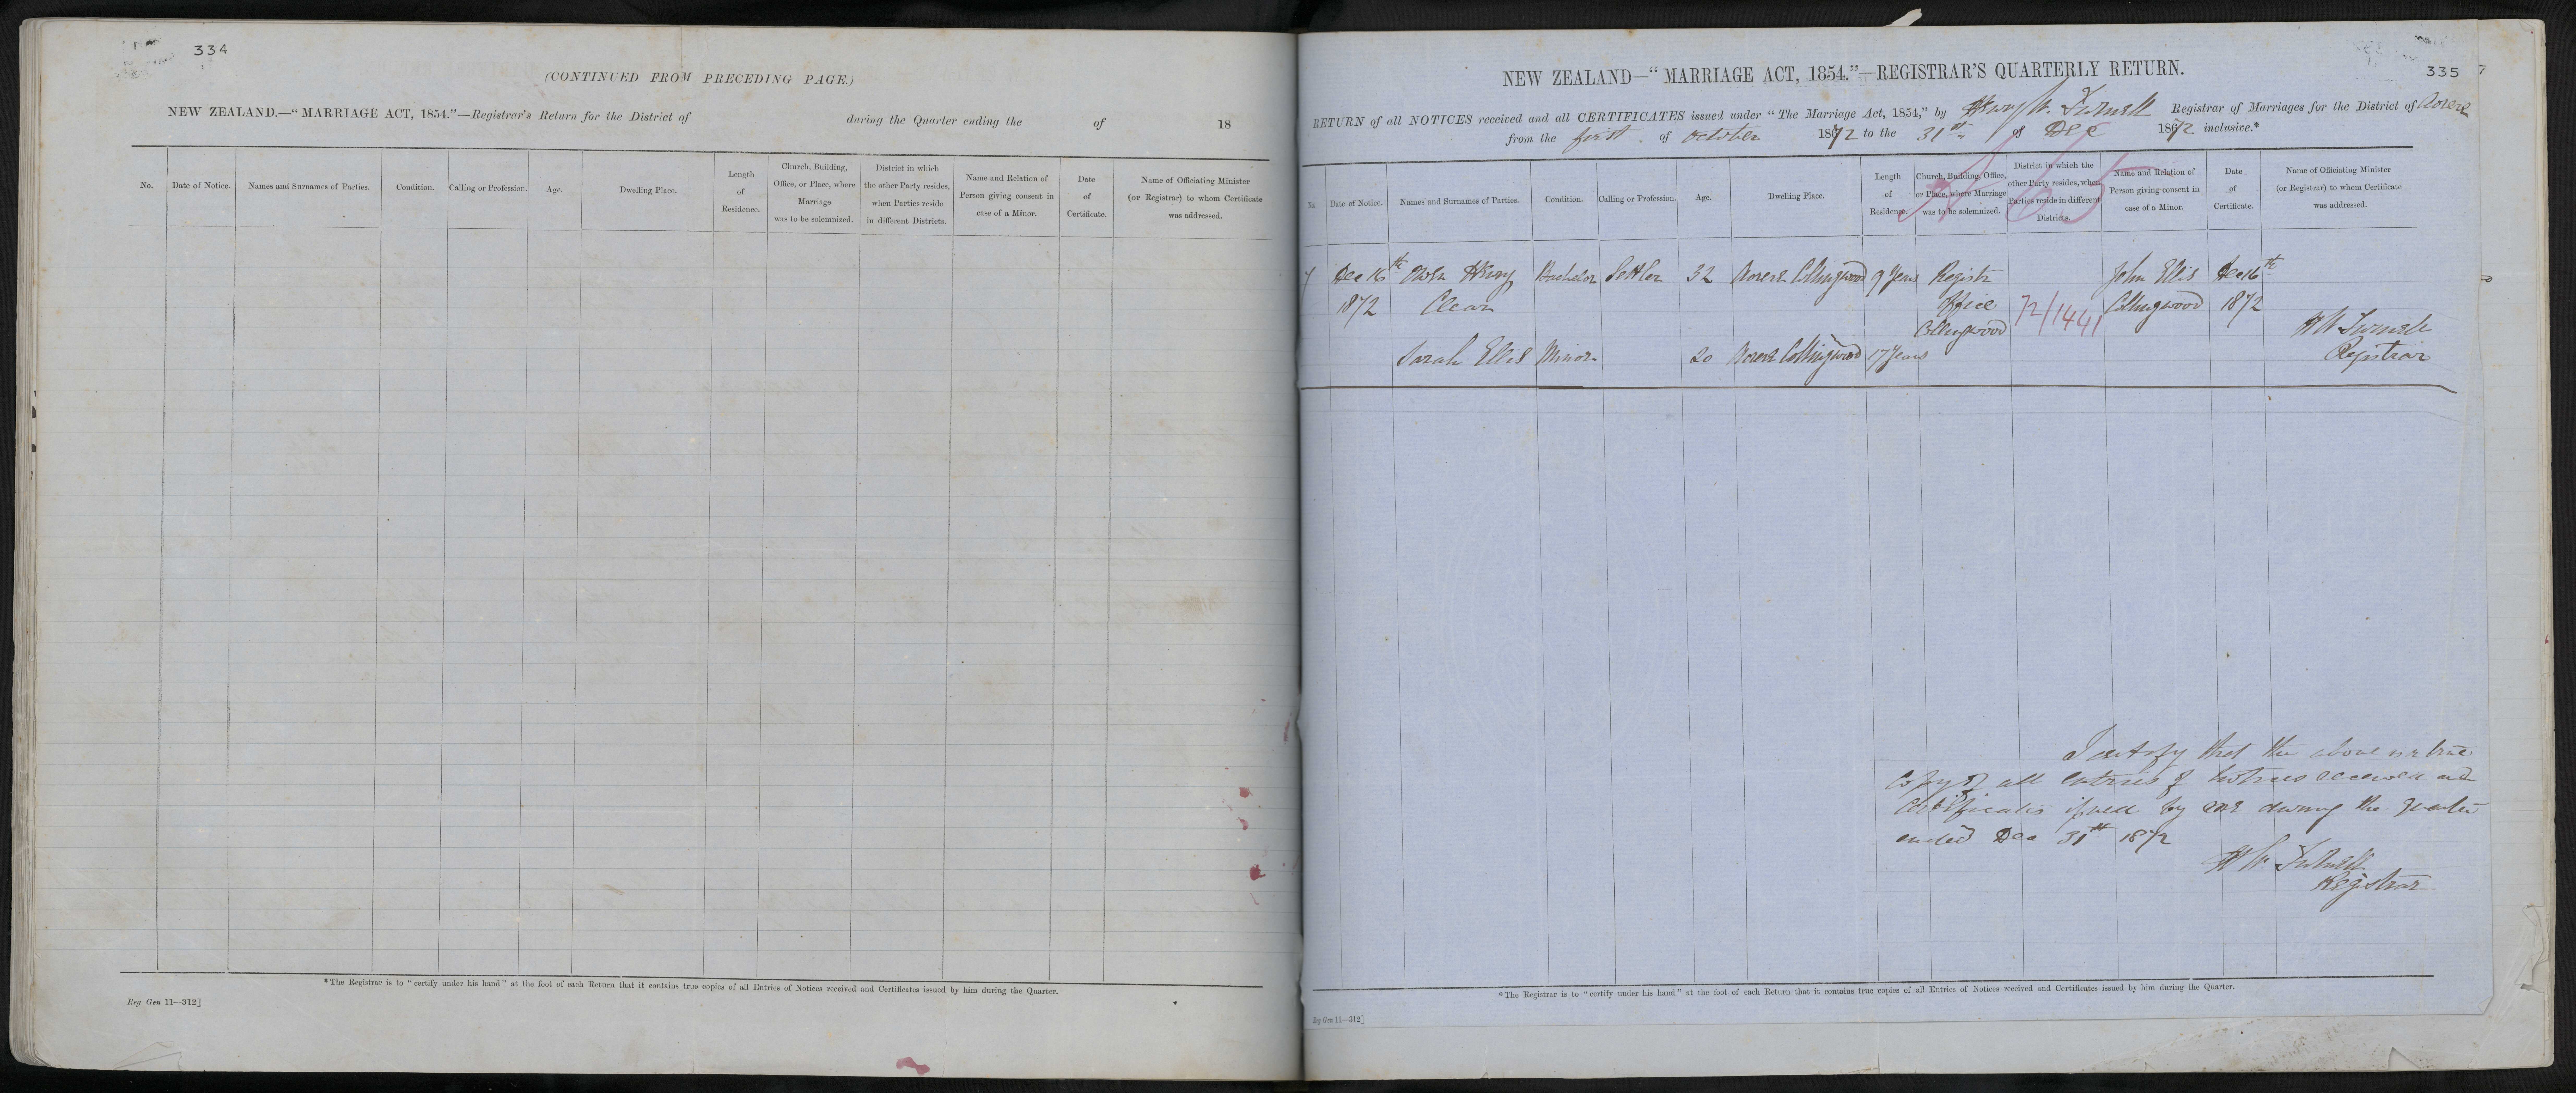 334
(CONTINUED FROM PRECEDING PAGE.)
NEW ZEALAND.—"MARRIAGE ACT, 1854."—Registrar's Return for the District of during the Quarter ending the of 18
No. Date of Notice. Names and Surnames of Parties. Condition. Calling or Profession. Age. Dwelling Place. Length of Residence. Church, Building, Office, or Place, where Marriage was to be solemnized. District in which the other Party resides, when Parties reside in different Districts. Name and Relation of Person giving consent in case of a Minor. Date of Certificate. Name of Officiating Minister (or Registrar) to whom Certificate was addressed.
*The Registrar is to "certify under his hand" at the foot of each Return that it contains true copies of all Entries of Notices received and Certificates issued by him during the Quarter.
Reg Gen 11—312]
335
NEW ZEALAND—"MARRIAGE ACT, 1854."—REGISTRAR'S QUARTERLY RETURN.
RETURN of all NOTICES received and all CERTIFICATES issued under "The Marriage Act, 1854," by Henry W. Turnell Registrar of Marriages for the District of Aorere
from the first of October 1872 to the 31st of Dec 1872 inclusive.*
No. Date of Notice. Names and Surnames of Parties. Condition. Calling or Profession. Age. Dwelling Place. Length of Residence. Church, Building, Office, or Place, where Marriage was to be solemnized. District in which the other Party resides, when Parties reside in different Districts. Name and Relation of Person giving consent in case of a Minor. Date of Certificate. Name of Officiating Minister (or Registrar) to whom Certificate was addressed.
Dec 16th Henry Bachelor Settler 32 Aorere Collingwood 9 Years Registr John Ellis Dec 16th
1872 Clear Office 72/1441 Collingwood 1872
Collingwood H W Turnell
Sarah Ellis Minor 20 Aorere Collingwood 17 Years Registrar
I certify that the above is a true
Copy of all entries of Notices received and
Certificates issued by me during the quarter
ended Dec 31st 1872
H W. Turnell
Registrar
*The Registrar is to "certify under his hand" at the foot of each Return that it contains true copies of all Entries of Notices received and Certificates issued by him during the Quarter.
Reg Gen 11—312]